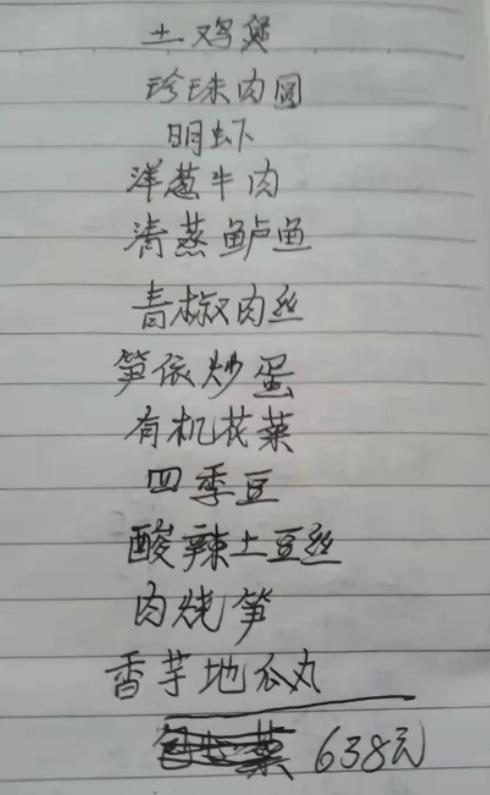 土鸡煲
珍珠肉圆
明虾
洋葱牛肉
清蒸鲈鱼
青椒肉丝
笋依炒蛋
有机花菜
四季豆
酸辣土豆丝
肉烧笋
香芋地瓜丸
638元